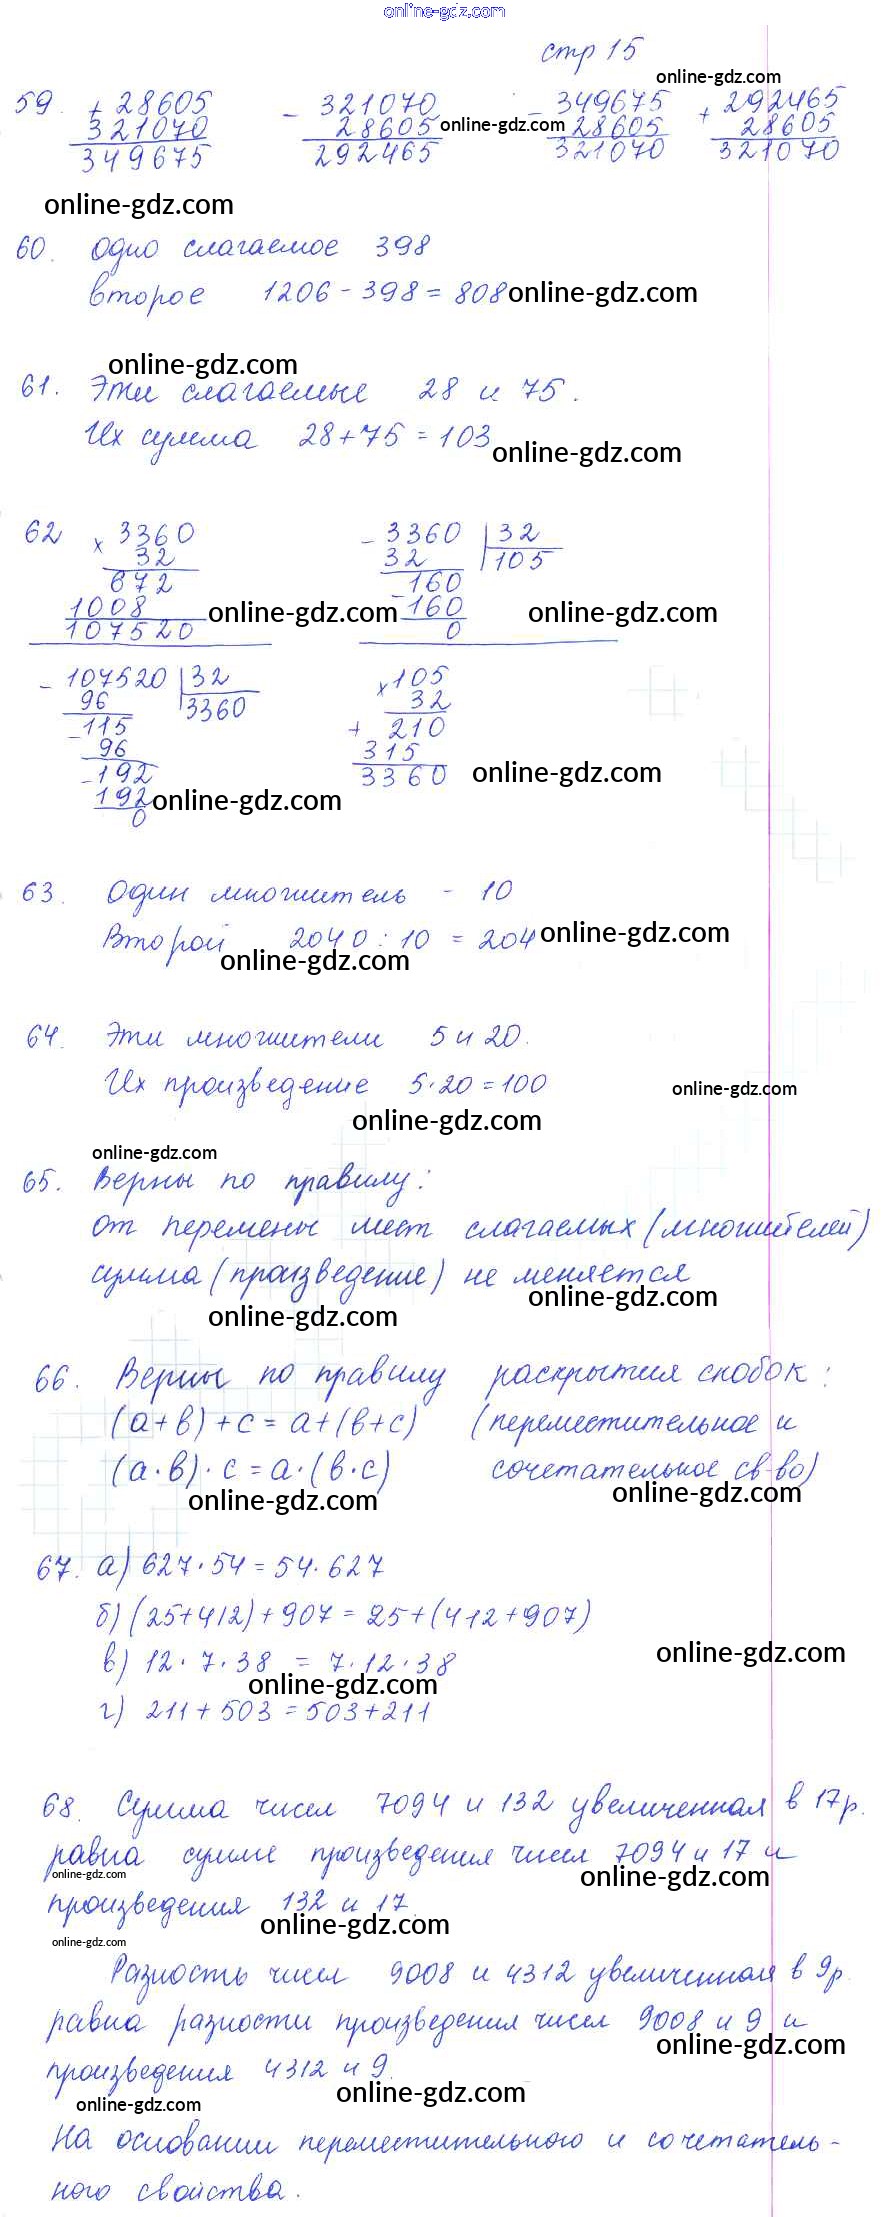 online-gdz.com
стр 15
online-gdz.com
59. + 28605 - 321070 - 349675 + 292465
321070 28605 online-gdz.com 28605 28605
349675 292465 321070 321070
online-gdz.com
60. Одно слагаемое 398
второе 1206 - 398 = 808 online-gdz.com
online-gdz.com
61. Эти слагаемые 28 и 75.
Их сумма 28+75 = 103
online-gdz.com
62 × 3360 - 3360 | 32
32 32 105
672 160
1008 online-gdz.com - 160 online-gdz.com
107520 0
- 107520 | 32 × 105
96 3360 32
- 115 + 210
96 315
- 192 3360 online-gdz.com
192 online-gdz.com
0
63. Один множитель - 10
Второй 2040 : 10 = 204 online-gdz.com
online-gdz.com
64. Эти множители 5 и 20.
Их произведение 5·20 = 100 online-gdz.com
online-gdz.com
online-gdz.com
65. Верны по правилу:
От перемены мест слагаемых (множителей)
сумма (произведение) не меняется
online-gdz.com online-gdz.com
66. Верны по правилу раскрытия скобок:
(а+в)+с = а+(в+с) (переместительное и
(а·в)·с = а·(в·с) сочетательное св-во)
online-gdz.com online-gdz.com
67. а) 627·54 = 54·627
б) (25+412)+907 = 25+(412+907)
в) 12·7·38 = 7·12·38 online-gdz.com
online-gdz.com
г) 211+503 = 503+211
68. Сумма чисел 7094 и 132 увеличенная в 17 р.
равна сумме произведения чисел 7094 и 17 и
online-gdz.com online-gdz.com
произведения 132 и 17.
online-gdz.com
online-gdz.com
Разность чисел 9008 и 4312 увеличенная в 9 р.
равна разности произведения чисел 9008 и 9 и
online-gdz.com
произведения 4312 и 9.
online-gdz.com online-gdz.com
На основании переместительного и сочетатель-
ного свойства.